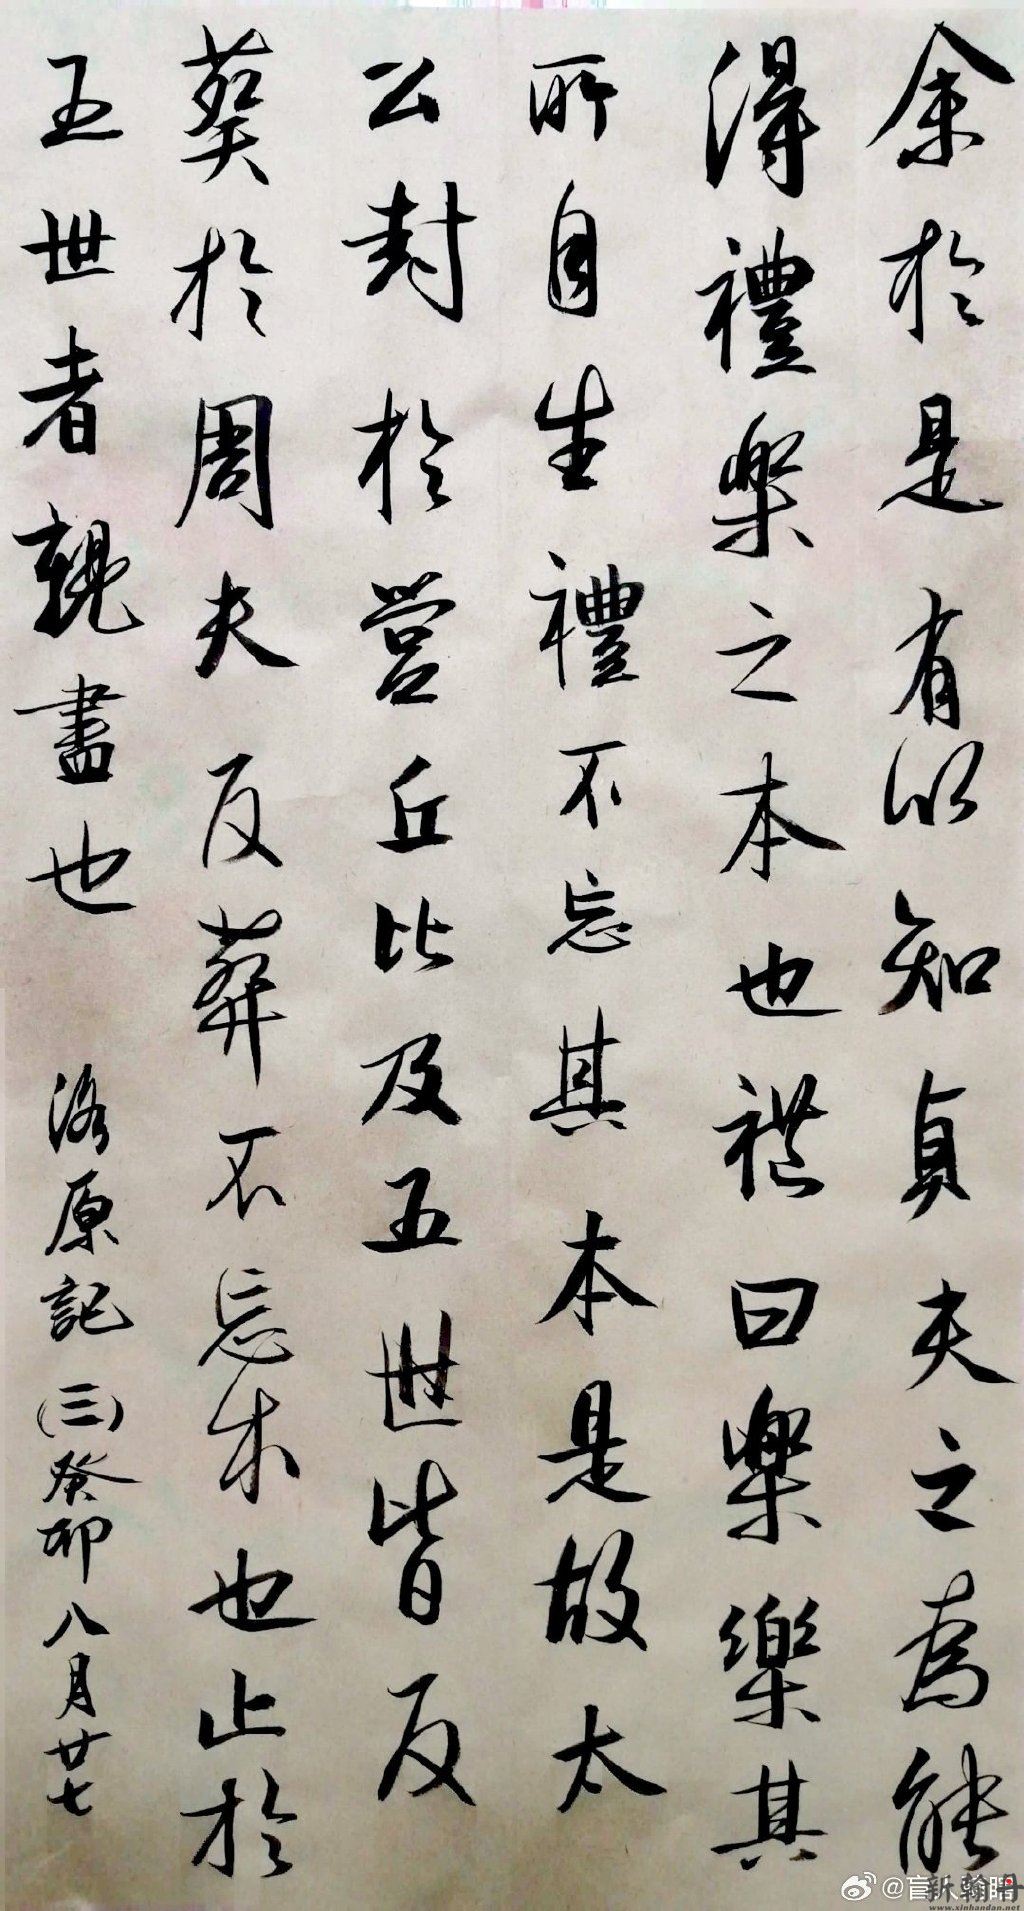 余於是有以知貞夫之為能
得禮樂之本也礼曰樂樂其
所自生禮不忘其本是故太
公封於营丘比及五世皆反
葵於周夫反葬不忘本也止於
五世者親盡也
洛原記(三)癸卯八月廿七
新翰丹
www.xinhandan.net